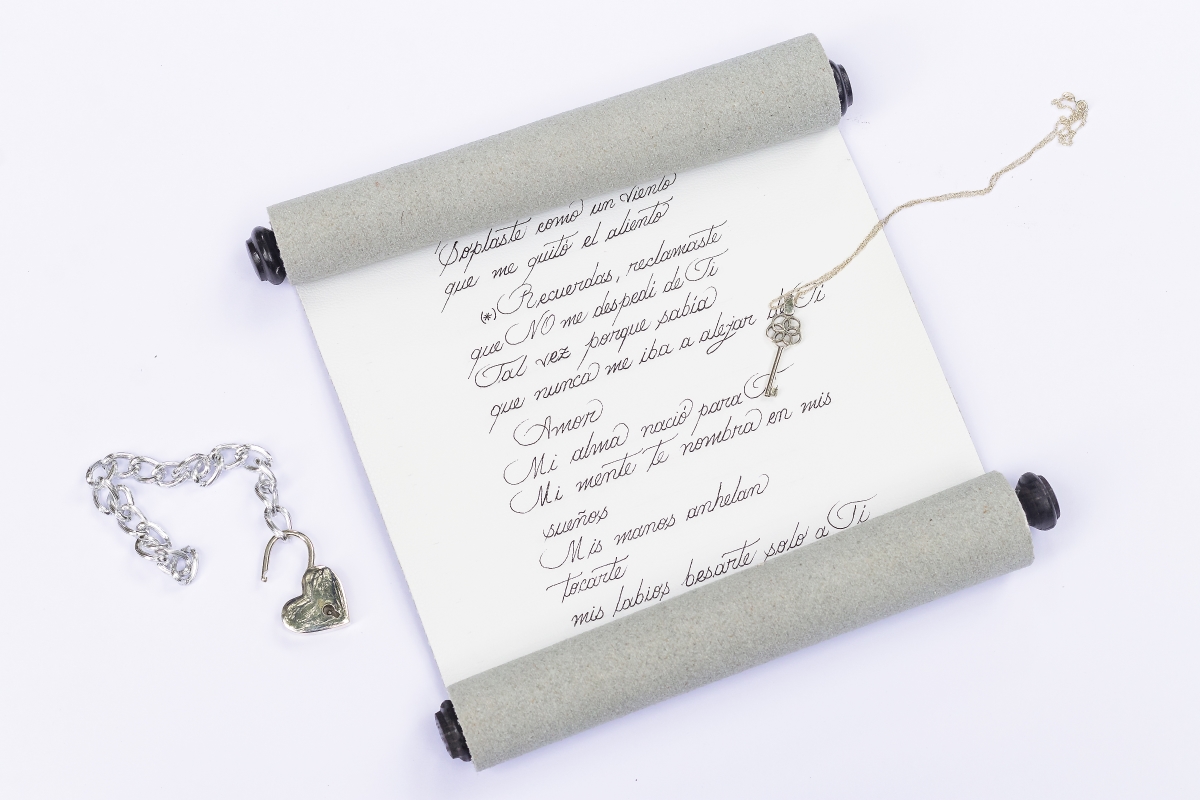 Soplaste como un viento
que me quitó el aliento
(*) Recuerdas, reclamaste
que NO me despedi de Ti
Tal vez porque sabía
que nunca me iba a alejar de Ti
Amor
Mi alma nació para
Mi mente te nombra en mis
sueños
Mis manos anhelan
tocarte
mis labios besarte solo a Ti